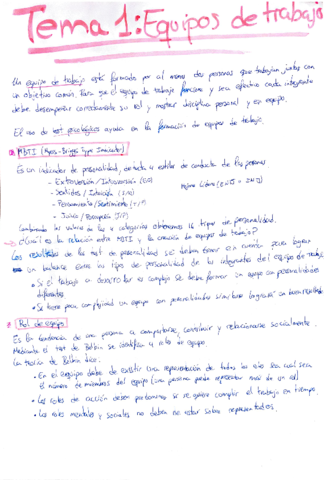 Tema 1: Equipos de trabajo
Un equipo de trabajo está formado por al menos dos personas que trabajan juntas con
un objetivo común. Para que el equipo de trabajo funcione y sea efectivo cada integrante
debe desempeñar correctamente su rol y mostrar disciplina personal y en equipo.
El uso de test psicológicos ayuda en la formación de equipos de trabajo.
MBTI (Myers-Briggs Type Indicator)
Es un indicador de personalidad, de
- Extroversión / Introversión (E/I)
- Sentidos / Intuición (S/N)
- Pensamiento / Sentimiento (T/F)
- Juicio / Percepción (J/P)
las 4 categorías obtenemos 16 tipos de personalidad.
¿Cuál es la relación entre MBTI y la creación de equipos de trabajo?
Los resultados de los test de personalidad se deben tener en cuenta para lograr
un balance entre los tipos de personalidad de los integrantes del equipo de trabajo
• Si el trabajo a desarrollar es complejo se debe formar un equipo con personalidades
diferentes
• Si tiene poca complejidad un equipo con personalidades similares lograría un buen resultado
Rol de equipo
Es la tendencia de una persona a comportarse, contribuir y relacionarse socialmente.
Mediante el test de Belbin se identifica el rol de equipo.
La teoría de Belbin dice:
• En el equipo debe de existir una representación de todos los roles sea cual sea
el número de miembros del equipo (una persona puede representar más de un rol)
• Los roles de acción deben predominar si se quiere cumplir el trabajo en tiempo.
• Los roles mentales y sociales no deben no estar sobre representados.